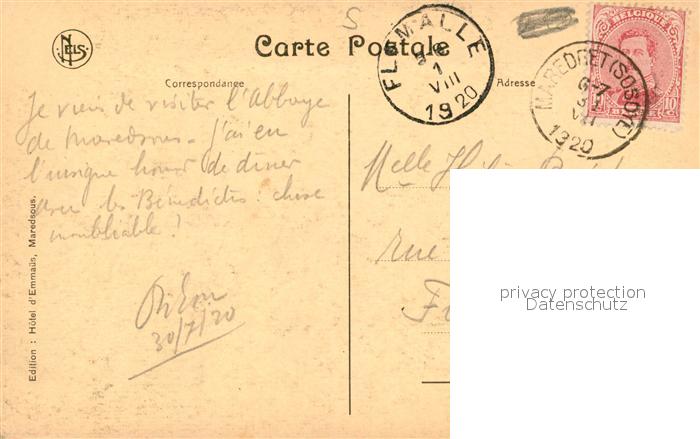 NELS
Carte Postale
Correspondance
Adresse
FLÉMALLE
1
VIII
1920
MAREDRET (SOSOYE)
6-7
31
VII
1920
BELGIQUE
10
Je viens de visiter l'Abbaye
de Maredsous. J'ai eu
l'unique honneur de dîner
avec les Bénédictins : chose
inoubliable !
30/7/20
Melle
rue
Edition : Hôtel d'Emmaüs, Maredsous.
privacy protection
Datenschutz